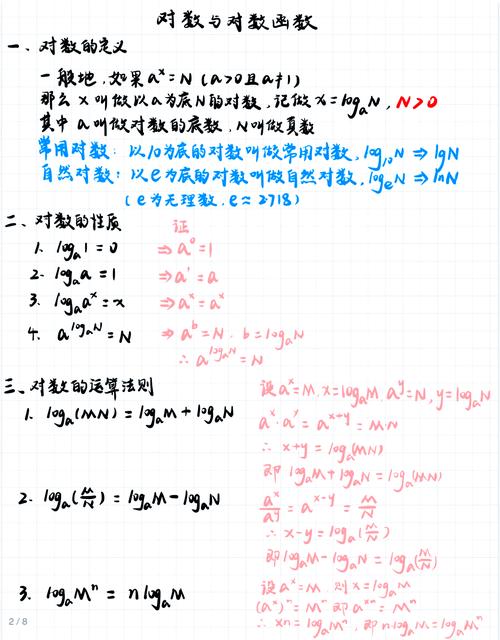 对数与对数函数
一、对数的定义
一般地,如果 aˣ=N (a>0且a≠1)
那么 x 叫做以a为底N的对数,记做 x=logₐN, N>0
其中 a叫做对数的底数,N叫做真数
常用对数: 以10为底的对数叫做常用对数, log₁₀N ⇒ lgN
自然对数: 以e为底的对数叫做自然对数, logₑN ⇒ lnN
(e为无理数, e≈2718)
二、对数的性质 证
1. logₐ1=0 ⇒a⁰=1
2. logₐa=1 ⇒a¹=a
3. logₐaˣ=x ⇒aˣ=aˣ
4. a^(logₐN)=N ⇒aᵇ=N. b=logₐN
∴ a^(logₐN)=N
三、对数的运算法则
1. logₐ(MN)=logₐM+logₐN
设aˣ=M, x=logₐM, aʸ=N, y=logₐN
aˣ·aʸ=aˣ⁺ʸ=M·N
∴ x+y=logₐ(MN)
即 logₐM+logₐN=logₐ(MN)
2. logₐ(M/N)=logₐM-logₐN
aˣ/aʸ=aˣ⁻ʸ=M/N
∴ x-y=logₐ(M/N)
即logₐM-logₐN=logₐ(M/N)
3. logₐMⁿ=nlogₐM
设aˣ=M 则x=logₐM
(aˣ)ⁿ=Mⁿ即aˣⁿ=Mⁿ
∴ xn=logₐMⁿ, 即n·logₐM=logₐMⁿ
2/8